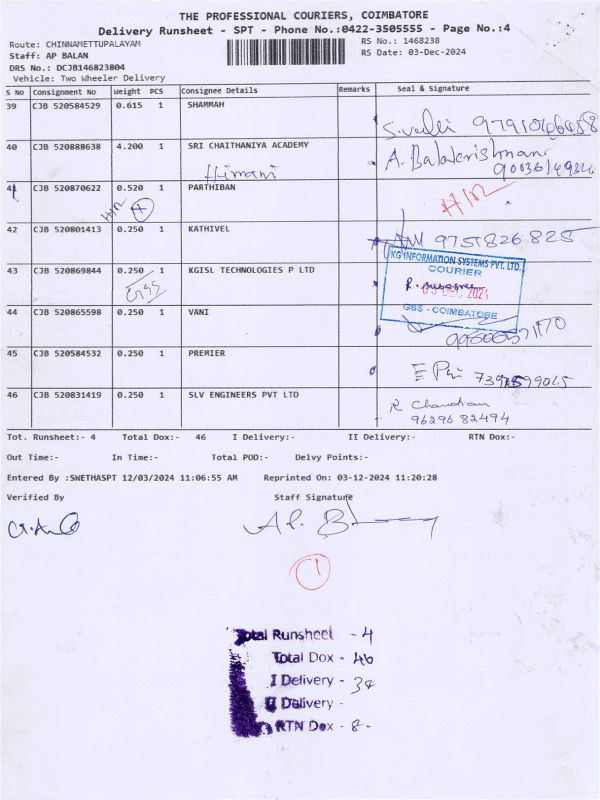 THE PROFESSIONAL COURIERS, COIMBATORE
Delivery Runsheet - SPT - Phone No.:0422-3505555 - Page No.:4
Route: CHINNAMETTUPALAYAM RS No.: 1468238
Staff: AP BALAN RS Date: 03-Dec-2024
DRS No.: DCJB146823B04
Vehicle: Two Wheeler Delivery
S No Consignment No Weight PCS Consignee Details Remarks Seal & Signature
39 CJB 520584529 0.615 1 SHAMMAH
40 CJB 520888638 4.200 1 SRI CHAITHANIYA ACADEMY A. Balakrishnan
Himani
41 CJB 520870622 0.520 1 PARTHIBAN
H/R H/R
42 CJB 520801413 0.250 1 KATHIVEL 9751826825
43 CJB 520869844 0.250 1 KGISL TECHNOLOGIES P LTD
GSS
KG INFORMATION SYSTEMS PVT. LTD.
COURIER
03 DEC 2024
GSS - COIMBATORE
44 CJB 520865598 0.250 1 VANI
45 CJB 520584532 0.250 1 PREMIER
46 CJB 520831419 0.250 1 SLV ENGINEERS PVT LTD
R Chandran
96296 82494
Tot. Runsheet:- 4 Total Dox:- 46 I Delivery:- II Delivery:- RTN Dox:-
Out Time:- In Time:- Total POD:- Delvy Points:-
Entered By :SWETHASPT 12/03/2024 11:06:55 AM Reprinted On: 03-12-2024 11:20:28
Verified By Staff Signature
1
Total Runsheet - 4
Total Dox - 46
I Delivery - 38
II Delivery -
RTN Dox - 8-